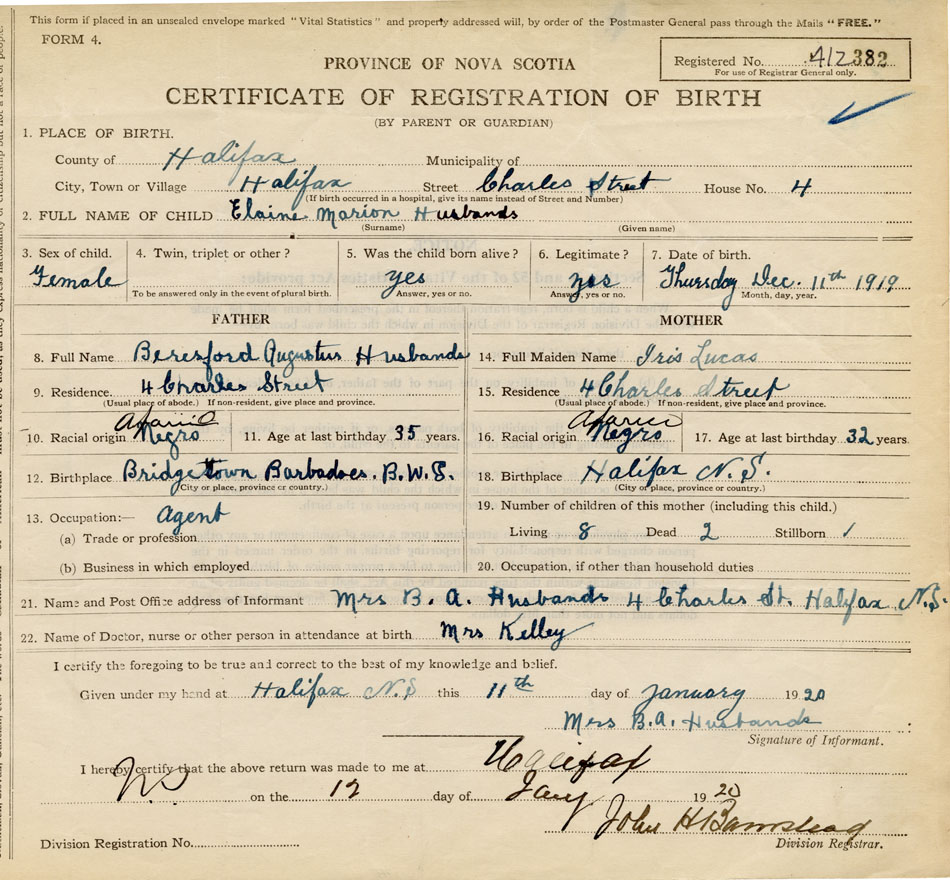 This form if placed in an unsealed envelope marked "Vital Statistics" and property addressed will, by order of the Postmaster General pass through the Mails "FREE."
FORM 4.
Registered No. 412382
For use of Registrar General only.
PROVINCE OF NOVA SCOTIA
CERTIFICATE OF REGISTRATION OF BIRTH
(BY PARENT OR GUARDIAN)
1. PLACE OF BIRTH.
County of Halifax Municipality of
City, Town or Village Halifax Street Charles Street House No. 4
(If birth occurred in a hospital, give its name instead of Street and Number)
2. FULL NAME OF CHILD Elaine Marion Husbands
(Surname) (Given name)
3. Sex of child. 4. Twin, triplet or other? 5. Was the child born alive? 6. Legitimate? 7. Date of birth.
Female yes yes Thursday Dec. 11th 1919
To be answered only in the event of plural birth. Answer, yes or no. Answer, yes or no. Month, day, year.
FATHER MOTHER
8. Full Name Beresford Augustus Husbands 14. Full Maiden Name Iris Lucas
9. Residence. 4 Charles Street 15. Residence 4 Charles Street
(Usual place of abode.) If non-resident, give place and province. (Usual place of abode.) If non-resident, give place and province.
10. Racial origin Negro 11. Age at last birthday 35 years. 16. Racial origin Negro 17. Age at last birthday 32 years.
12. Birthplace Bridgetown Barbadoes. B.W.I. 18. Birthplace Halifax N.S.
(City or place, province or country.) (City or place, province or country.)
13. Occupation:— Agent 19. Number of children of this mother (including this child.)
(a) Trade or profession Living 8 Dead 2 Stillborn /
(b) Business in which employed 20. Occupation, if other than household duties
21. Name and Post Office address of Informant Mrs B. A. Husbands 4 Charles St. Halifax N.S.
22. Name of Doctor, nurse or other person in attendance at birth Mrs Kelley
I certify the foregoing to be true and correct to the best of my knowledge and belief.
Given under my hand at Halifax N.S this 11th day of January 1920
Mrs B.A. Husbands
Signature of Informant.
I hereby certify that the above return was made to me at Halifax
NS on the 12 day of Jany 1920
John H Barnstead
Division Registration No. Division Registrar.